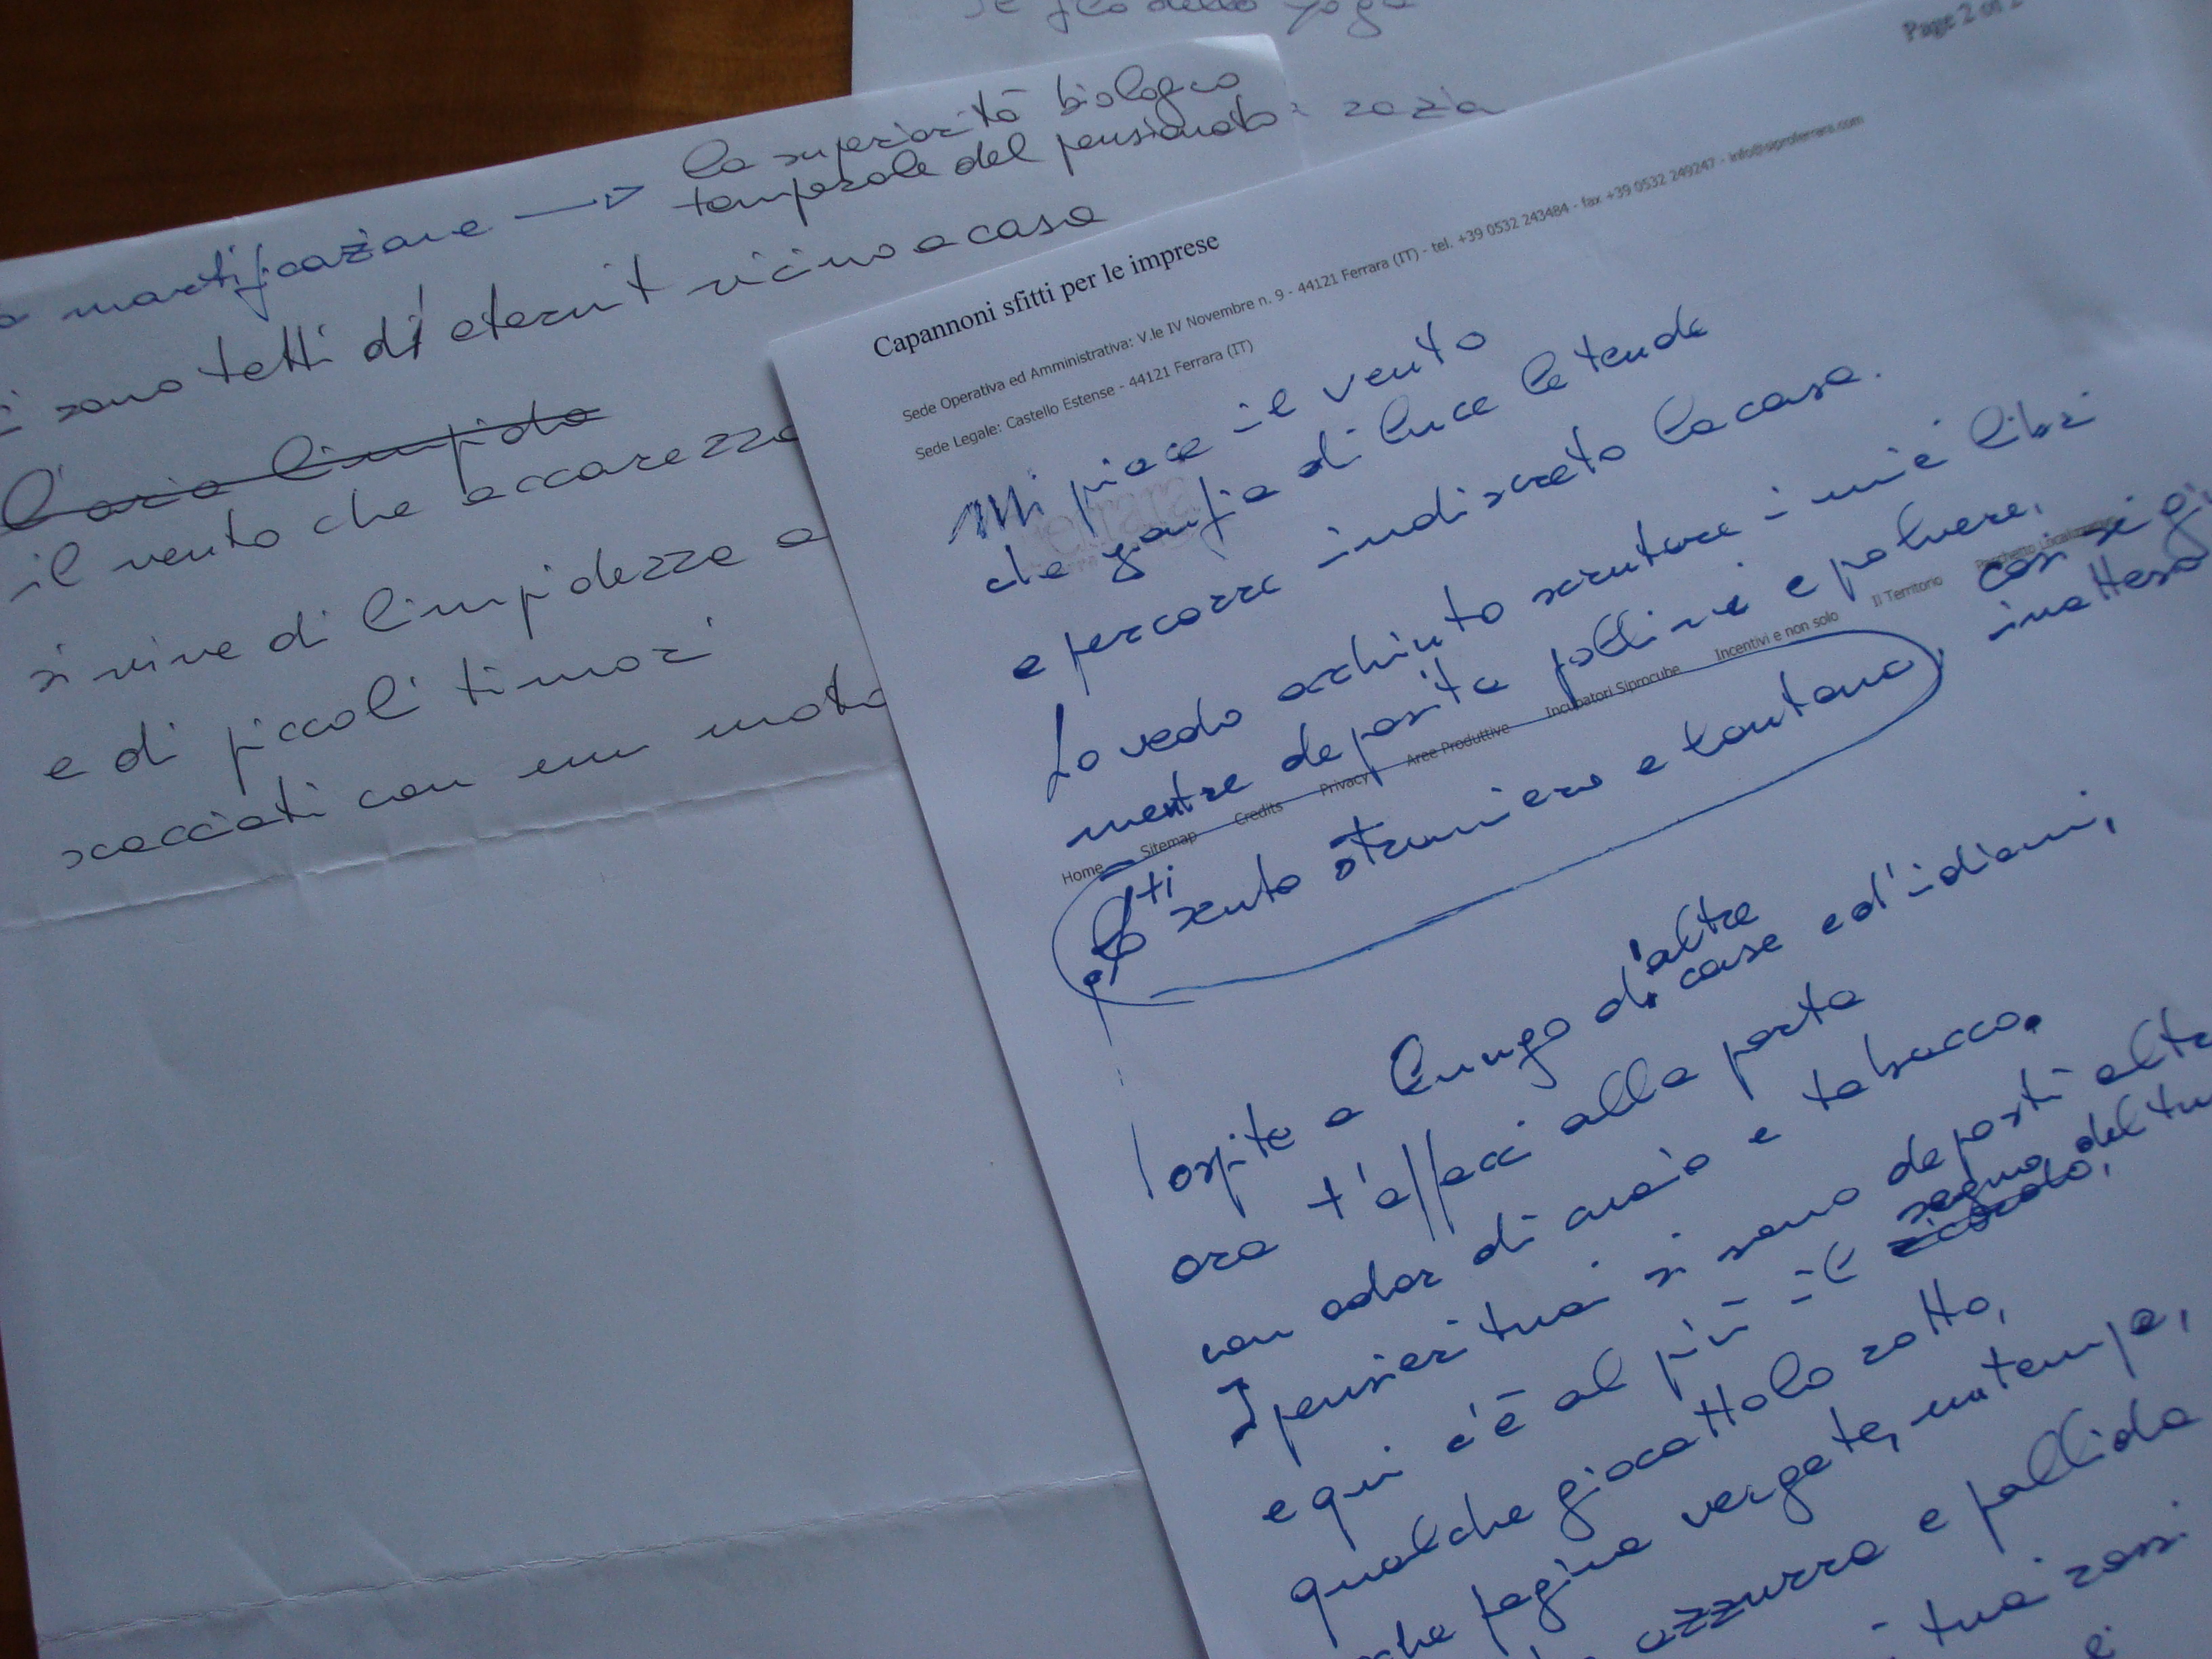 se
dello yoga
mortificazione → la superiorità biologico
temporale del pensionato
sono tetti di eternit vicino a casa
l'aria limpida
il vento che accarezza
si vive di limpidezze e
e di piccoli timori
scacciati con un moto
Page 2 of 2
Capannoni sfitti per le imprese
Sede Operativa ed Amministrativa: V.le IV Novembre n. 9 - 44121 Ferrara (IT) - tel. +39 0532 243484 - fax +39 0532 249247 - info@siproferrara.com
Sede Legale: Castello Estense - 44121 Ferrara (IT)
ferrara
Mi piace il vento
che gonfia di luce le tende
e percorre indiscreto la casa.
Lo vedo occhiuto scrutare i miei libri
mentre deposita pollini e polvere,
così si
inatteso
Home Sitemap Credits Privacy Aree Produttive Incubatori Siprocube Incentivi e non solo Il Territorio Pacchetto Localizzativo
ti
Lo sento straniero e lontano,
ospite a lungo d'altre case e d'idiomi,
ora t'affacci alla porta
con odor di and e tabacco.
I pensieri tuoi si sono deposti altr
e qui c'è al più il ricordo, segno del tu
qualche giocattolo rotto,
che pagina vergate, un tempo,
azzurra e pallida
tuoi rossi